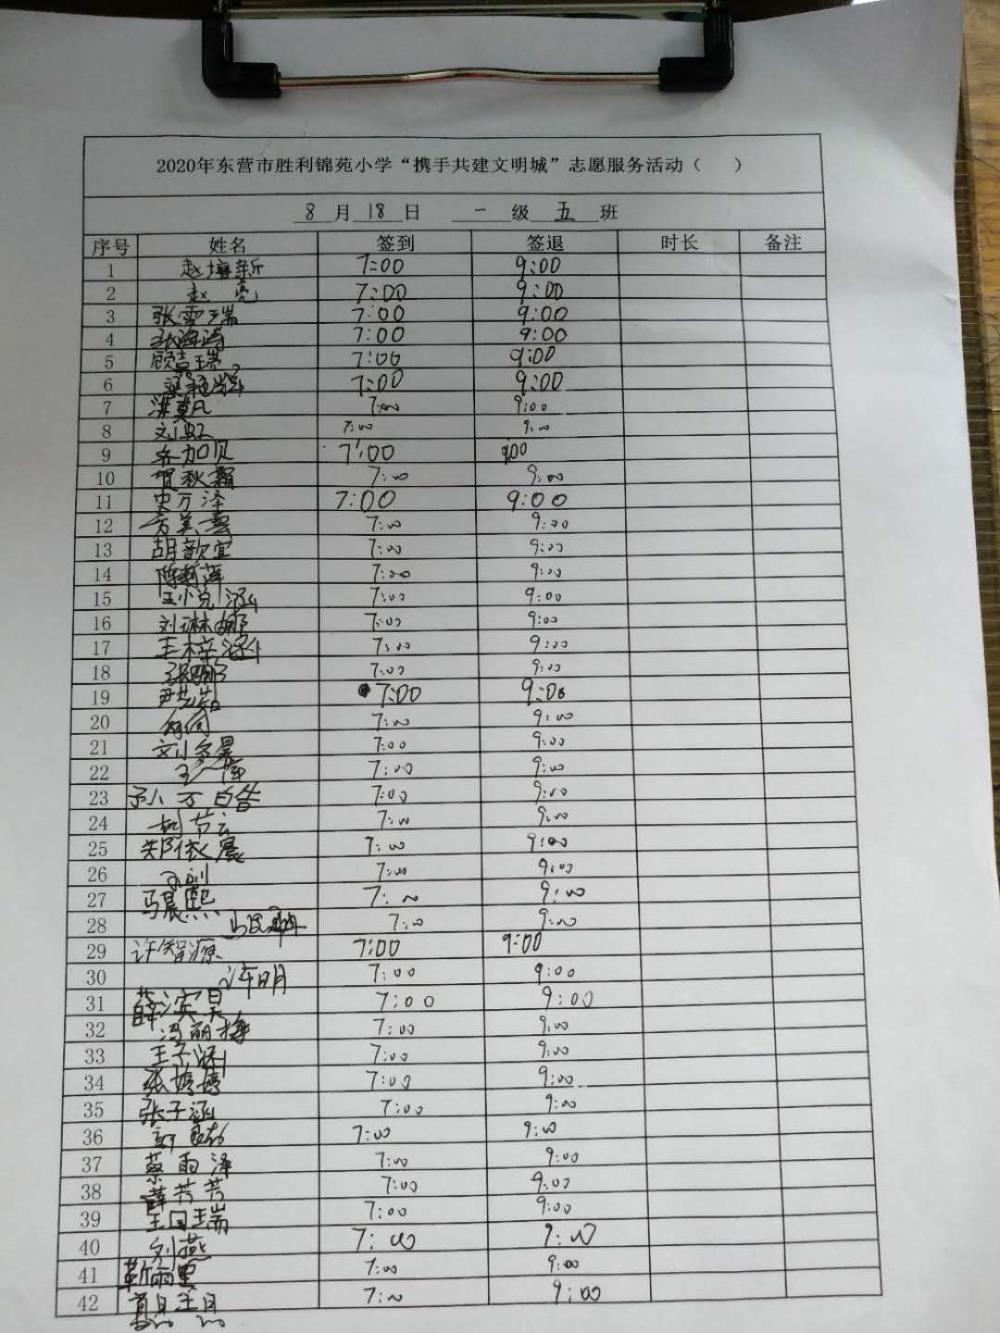 2020年东营市胜利锦苑小学“携手共建文明城”志愿服务活动（　）
8 月 18 日 一 级 五 班
序号 姓名 签到 签退 时长 备注
1 赵培新 7:00 9:00
2 赵亮 7:00 9:00
3 张雪瑞 7:00 9:00
4 张海涛 7:00 9:00
5 顾嘉瑞 7:00 9:00
6 7:00 9:00
7 洪莫凡 7:00 9:00
8 刘虹 7:00 9:00
9 加贝 7:00 9:00
10 贺秋霜 7:00 9:00
11 史万泽 7:00 9:00
12 7:00 9:00
13 胡歆宜 7:00 9:00
14 陈莉萍 7:00 9:00
15 7:00 9:00
16 刘琳娜 7:00 9:00
17 王梓涵 7:00 9:00
18 7:00 9:00
19 7:00 9:00
20 7:00 9:00
21 7:00 9:00
22 7:00 9:00
23 7:00 9:00
24 7:00 9:00
25 郑依晨 7:00 9:00
26 7:00 9:00
27 马晨熙 7:00 9:00
28 7:00 9:00
29 许智源 7:00 9:00
30 许明 7:00 9:00
31 薛滨昊 7:00 9:00
32 冯丽梅 7:00 9:00
33 王子涵 7:00 9:00
34 张婷婷 7:00 9:00
35 张子涵 7:00 9:00
36 7:00 9:00
37 蔡雨泽 7:00 9:00
38 薛芳芳 7:00 9:00
39 王国瑞 7:00 9:00
40 刘燕 7:00 9:00
41 靳雨墨 7:00 9:00
42 7:00 9:00